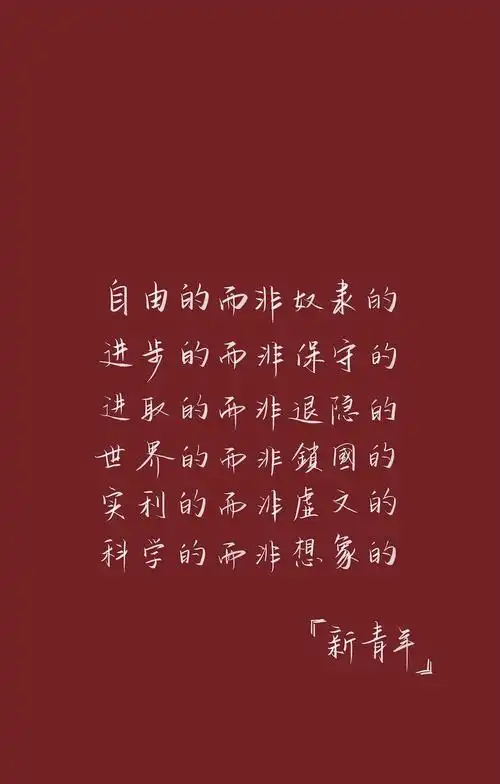 自由的而非奴隶的
进步的而非保守的
进取的而非退隐的
世界的而非鎖國的
实利的而非虚文的
科学的而非想象的
『新青年』